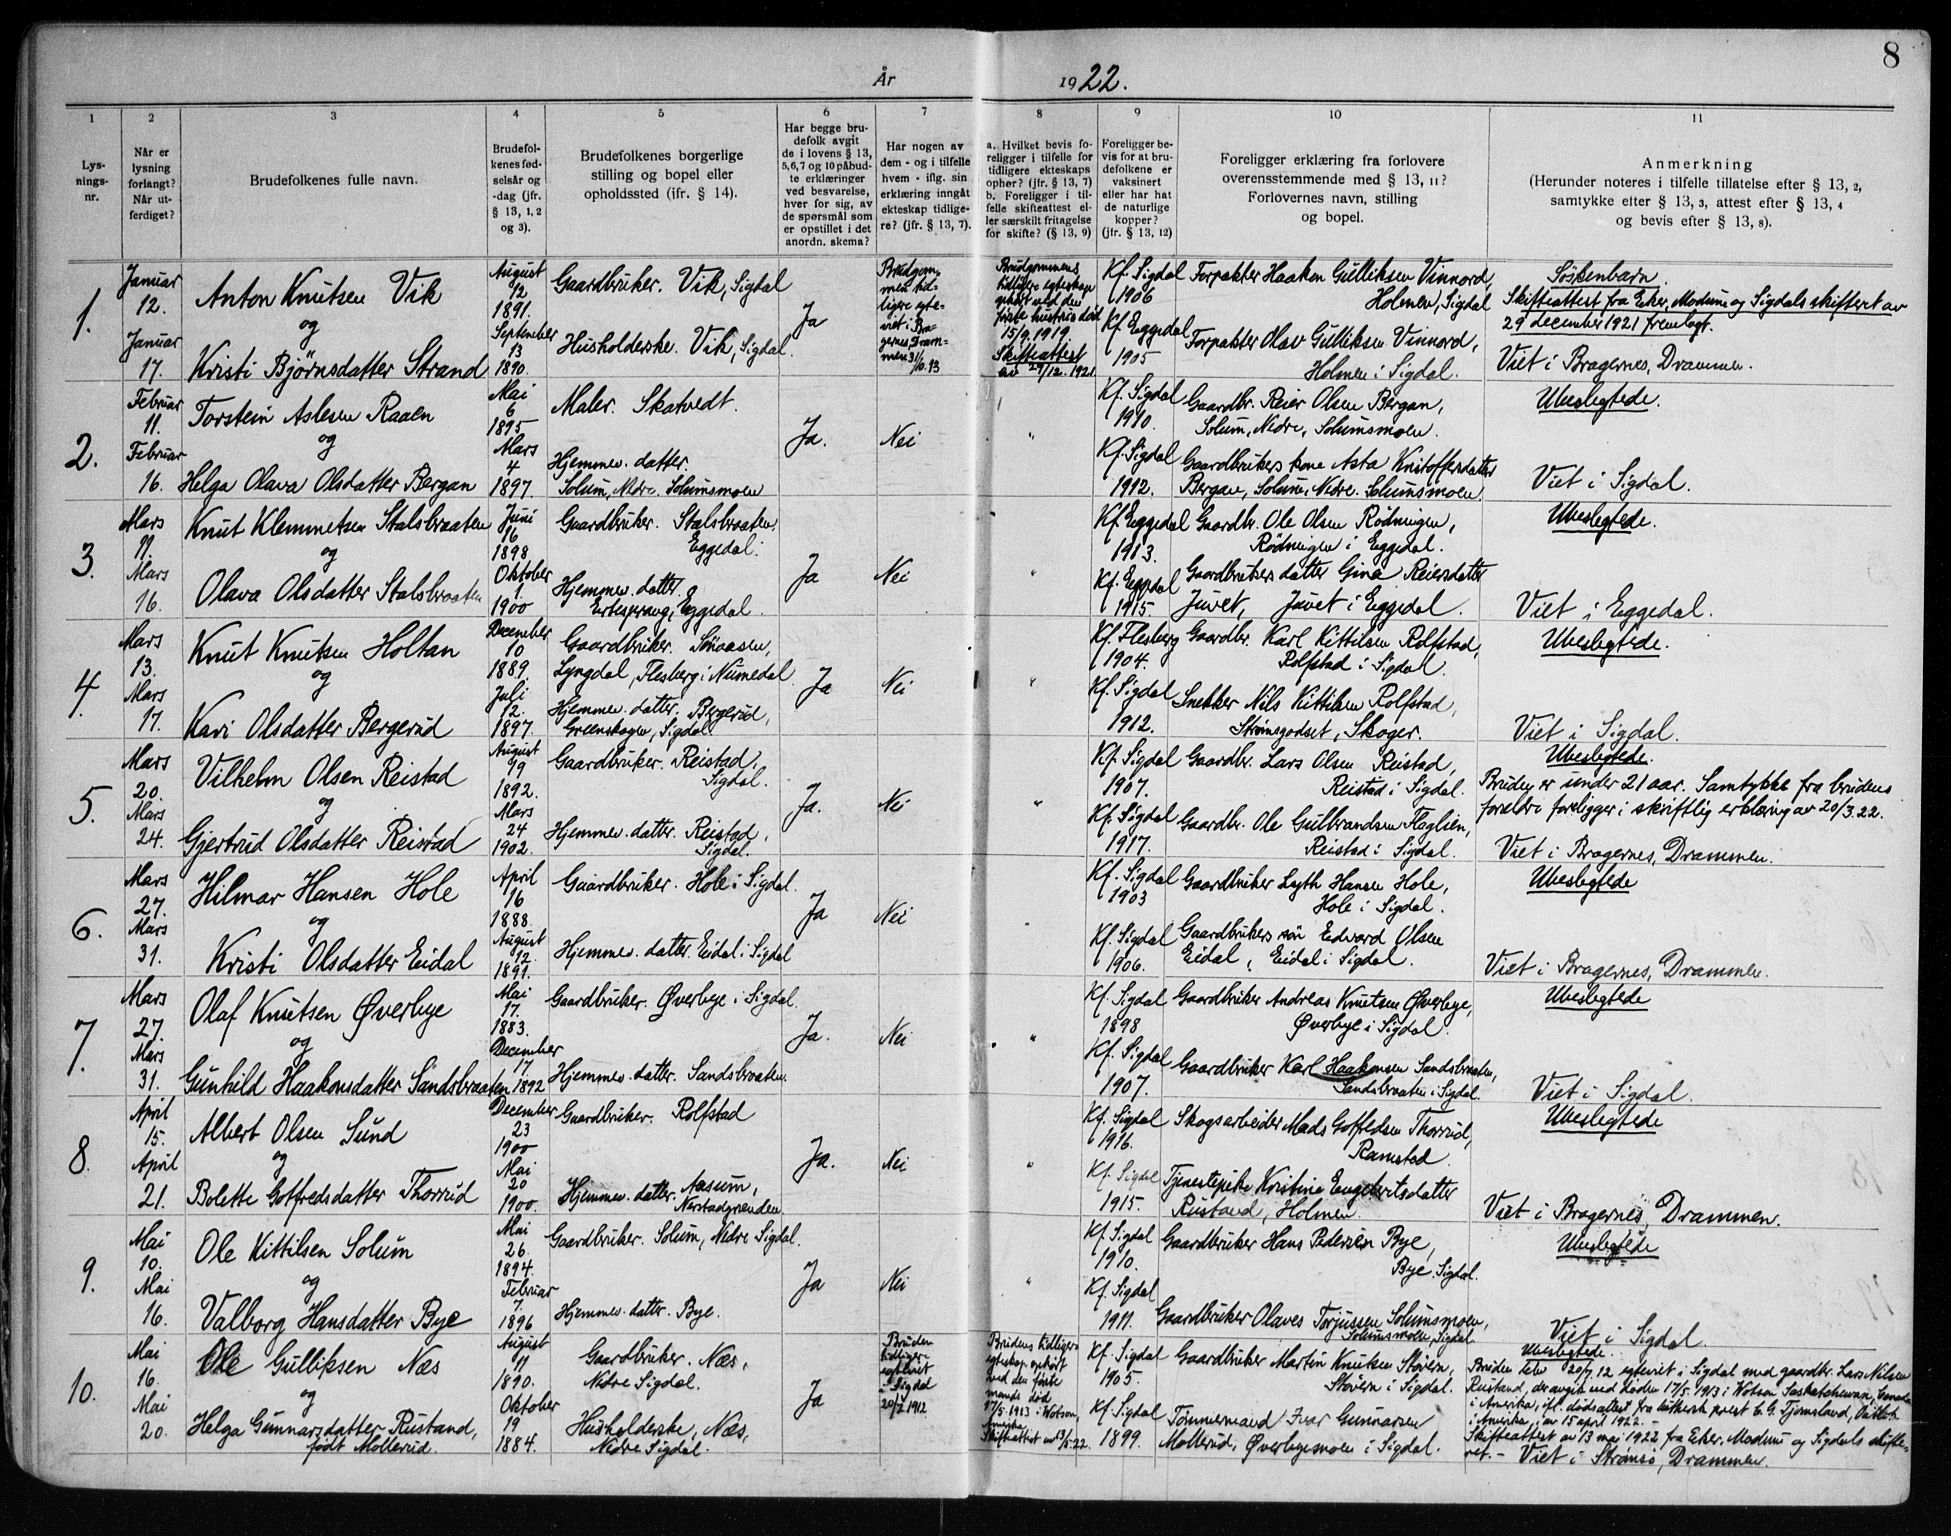 8
År 1922.
1
2
3
4
5
6
7
8
9
10
11
Lys-
nings-
nr.
Når er
lysning
forlangt?
Når ut-
ferdiget?
Brudefolkenes fulle navn.
Brudefol-
kenes fød-
selsår og
-dag (jfr.
§ 13, 1, 2
og 3).
Brudefolkenes borgerlige
stilling og bopel eller
opholdssted (jfr. § 14).
Har begge bru-
defolk avgit
de i lovens § 13,
5,6,7 og 10 påbud-
te erklæringer
ved besvarelse,
hver for sig, av
de spørsmål som
er opstillet i det
anordn. skema?
Har nogen av
dem - og i tilfelle
hvem - iflg. sin
erklæring inngått
ekteskap tidlige-
re? (jfr. § 13, 7).
a. Hvilket bevis fo-
religger i tilfelle for
tidligere ekteskaps
opher? (jfr. § 13, 7)
b. Foreligger i til-
felle skifteattest el-
ler særskilt fritagelse
for skifte? (§ 13, 9)
Foreligger be-
vis for at bru-
defolkene er
vaksinert
eller har hat
de naturlige
kopper?
(jfr. § 13, 12)
Foreligger erklæring fra forlovere
overensstemmende med § 13, 11?
Forlovernes navn, stilling
og bopel.
Anmerkning
(Herunder noteres i tilfelle tillatelse efter § 13, 2,
samtykke efter § 13, 3, attest efter § 13, 4
og bevis efter § 13, 8).
1.
Januar
12.
Januar
17.
Anton Knutsen Vik
og
Kristi Bjørnsdatter Strand
August
12
1891.
September
13
1890.
Gaardbruker. Vik, Sigdal
Husholderske. Vik, Sigdal.
Ja
Brudgom-
men tid-
ligere egte-
viet i Bra-
gernes, Dram-
men 31/10.13
Brudgommens
tidligere egteskap
ophørt ved den
første hustrus død
15/9.1919.
Skifteattest
av 29/12. 1921.
Kf. Sigdal
1906
Kf. Eggedal
1905
Forpakter Haaken Gulliksen Vinnord,
Holmen, Sigdal
Forpakter Olav Gulliksen Vinnord,
Holmen i Sigdal.
Søskenbarn
Skifteattest fra Eker, Modum og Sigdals skifteret av
29 december 1921 fremlagt.
Viet i Bragernes, Drammen.
2.
Februar
11.
Februar
16.
Torstein Aslesen Raaen
og
Helga Olava Olsdatter Bergan
Mai
6
1895
Mars
4
1897.
Maler. Skatvedt.
Hjemmev. datter.
Solum, Nedre. Solumsmoen
Ja.
Nei
"
Kf. Sigdal
1910.
Kf. Sigdal
1912.
Gaardbr. Reier Olsen Bergan,
Solum, Nedre, Solumsmoen.
Gaardbrukers kone Asta Kristoffersdatter
Bergan, Solum, Nedre. Solumsmoen.
Ubeslegtede.
Viet i Sigdal.
3.
Mars
11.
Mars
16.
Knut Klemmetsen Stalsbraaten
og
Olava Olsdatter Stalsbraaten
Juni
16
1898
Oktober
1.
1900
Gaardbruker. Stalsbraaten.
Eggedal.
Hjemmev. datter.
Ertesprang, Eggedal.
Ja
Nei
"
Kf. Eggedal
1913.
Kf. Eggedal
1915.
Gaardbr. Ole Olsen Rødningen,
Rødningen i Eggedal.
Gaardbrukers datter Gina Reiersdatter
Juvet, Juvet i Eggedal.
Ubeslegtede.
Viet i Eggedal.
4.
Mars
13.
Mars
17.
Knut Knutsen Holtan
og
Kari Olsdatter Bergerud
December
10
1889.
Juli
12.
1897.
Gaardbruker.
Lyngdal, Flesberg i Numedal
Hjemmev. datter. Bergerud,
Greenskogen, Sigdal
Ja
Nei
"
Kf. Flesberg
1904.
Kf. Sigdal
1912.
Gaardbr. Karl Kittilsen Rolfstad,
Rolfstad i Sigdal.
Snekker Nils Kittilsen Rolfstad,
Strømsgodset, Skoger.
Ubeslegtede.
Viet i Sigdal.
5.
Mars
20.
Mars
24.
Vilhelm Olsen Reistad
og
Gjertrud Olsdatter Reistad
August
19
1892.
Mars
24
1902.
Gaardbruker. Reistad,
Sigdal.
Hjemmev. datter. Reistad,
Sigdal.
Ja.
Nei
"
Kf. Sigdal
1907.
Kf. Sigdal
1917.
Gaardbr. Lars Olsen Reistad,
Reistad i Sigdal.
Gaardbr. Ole Gulbrandsen Flaglien,
Reistad i Sigdal.
Ubeslegtede.
Bruden er under 21 aar. Samtykke fra brudens
foreldre foreligger i skriftlig erklæring av 20/3.22.
Viet i Bragernes, Drammen.
6.
Mars
27.
Mars
31.
Hilmar Hansen Hole
og
Kristi Olsdatter Eidal
April
16
1888.
August
12
1891.
Gaardbruker. Hole i Sigdal.
Hjemmev. datter. Eidal i Sigdal
Ja
Nei
"
Kf. Sigdal
1903
Kf. Sigdal
1906.
Gaardbruker Hansen Hole,
Hole i Sigdal.
Gaardbrukers søn Edvard Olsen
Eidal, Eidal i Sigdal.
Ubeslegtede
Viet i Bragernes, Drammen.
7.
Mars
27.
Mars
31.
Olaf Knutsen Øverbye
og
Gunhild Haakonsdatter Sandsbraaten
Mai
17.
1883.
December
17
1892
Gaardbruker. Øverbye i Sigdal.
Hjemmev. datter. Sandsbraaten.
Ja.
Nei
"
Kf. Sigdal
1898
Kf. Sigdal
1907.
Gaardbruker Andreas Knutsen Øverbye,
Øverbye i Sigdal.
Gaardbruker Karl Haakonsen Sandsbraaten,
Sandsbraaten i Sigdal.
Ubeslegtede
Viet i Sigdal.
8.
April
15.
April
21.
Albert Olsen Sund
og
Bolette Gotfredsdatter Thorrud
December
23
1900
Mai
20
1900.
Gaardbruker. Rolfstad
Hjemmev. datter. Aasum,
Nerstadgrenden.
Ja.
Nei
"
Kf. Sigdal
1916.
Kf. Sigdal
1915.
Skogsarbeider Mads Gotfredsen Thorrud,
Ramstad
Tjenestepike Kristine Engebretsdatter
Rustand, Holmen.
Ubeslegtede
Viet i Bragernes, Drammen.
9.
Mai
10.
Mai
16.
Ole Kittilsen Solum
og
Valborg Hansdatter Bye
Mai
26.
1894.
Februar
7.
1896
Gaardbruker. Solum, Nedre Sigdal.
Hjemmev. datter. Bye.
Ja
Nei
"
Kf. Sigdal
1910.
Kf. Sigdal
1911.
Gaardbruker Hans Pedersen Bye,
Bye, Sigdal.
Gaardbruker Olaves Torjussen Solumsmoen,
Solumsmoen, Sigdal
Ubeslegtede
Viet i Sigdal
10.
Mai
16.
Mai
20.
Ole Gulliksen Næs
og
Helga Gunnarsdatter Rustand,
født Mollerud.
August
11
1890.
Oktober
19
1884.
Gaardbruker. Næs,
Nedre Sigdal.
Husholderske, Næs,
Nedre Sigdal.
Ja
Bruden
tidligere
egteviet
i Sigdal
20/7 1912
Brudens tidligere
egteskap ophørt
ved den første
mands død
17/5.1913 i Watson,
Amerika.
Skifteattest av 13/5.22.
Kf. Sigdal
1905.
Kf. Sigdal
1899.
Gaardbruker Martin Knutsen Støvern,
Støvern i Sigdal.
Tømmermand Ivar Gunnarsen
Mollerud, Øverbymoen i Sigdal.
Ubeslegtede.
Bruden blev 20/7.12 egteviet i Sigdal med gaardbr. Lars Nilsen
Rustand, der avgik ved døden 17/5.1913 i Watson Saskatchewan, Canada
i Amerika, ifl. dødsattest fra luthersk prest C. G. Tjomsland,
i Amerika, av 15 april 1922. –
Skifteattest av 13 mai 1922 fra Eker, Modum og Sigdals skifte-
ret. – Viet i Strømsø, Drammen.